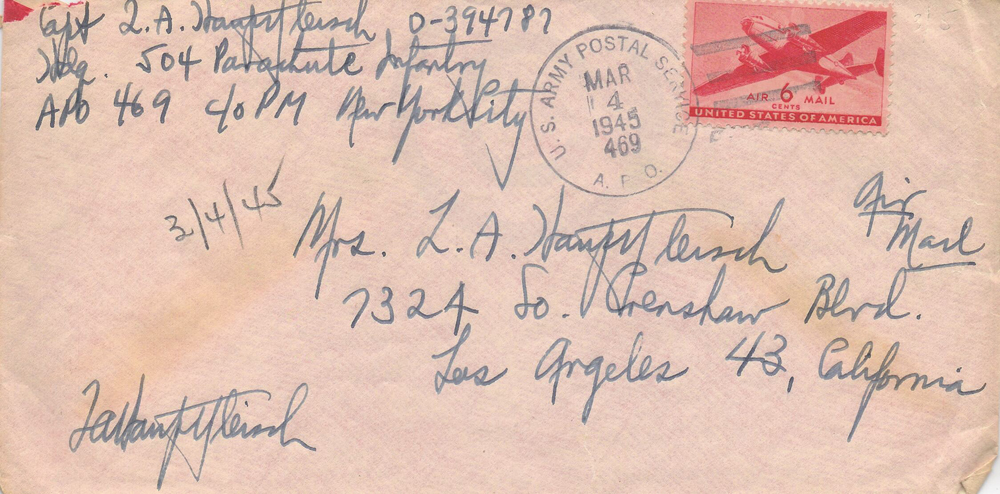 Capt L. A. Hauptfleisch O-394787
Hdq. 504 Parachute Infantry
APO 469 c/o PM New York City
U. S. ARMY POSTAL SERVICE
MAR
4
1945
469
A. P. O.
AIR 6 MAIL
CENTS
UNITED STATES OF AMERICA
Air
Mail
3/4/45
Mrs. L. A. Hauptfleisch
7324 So. Crenshaw Blvd.
Los Angeles 43, California
LAHauptfleisch